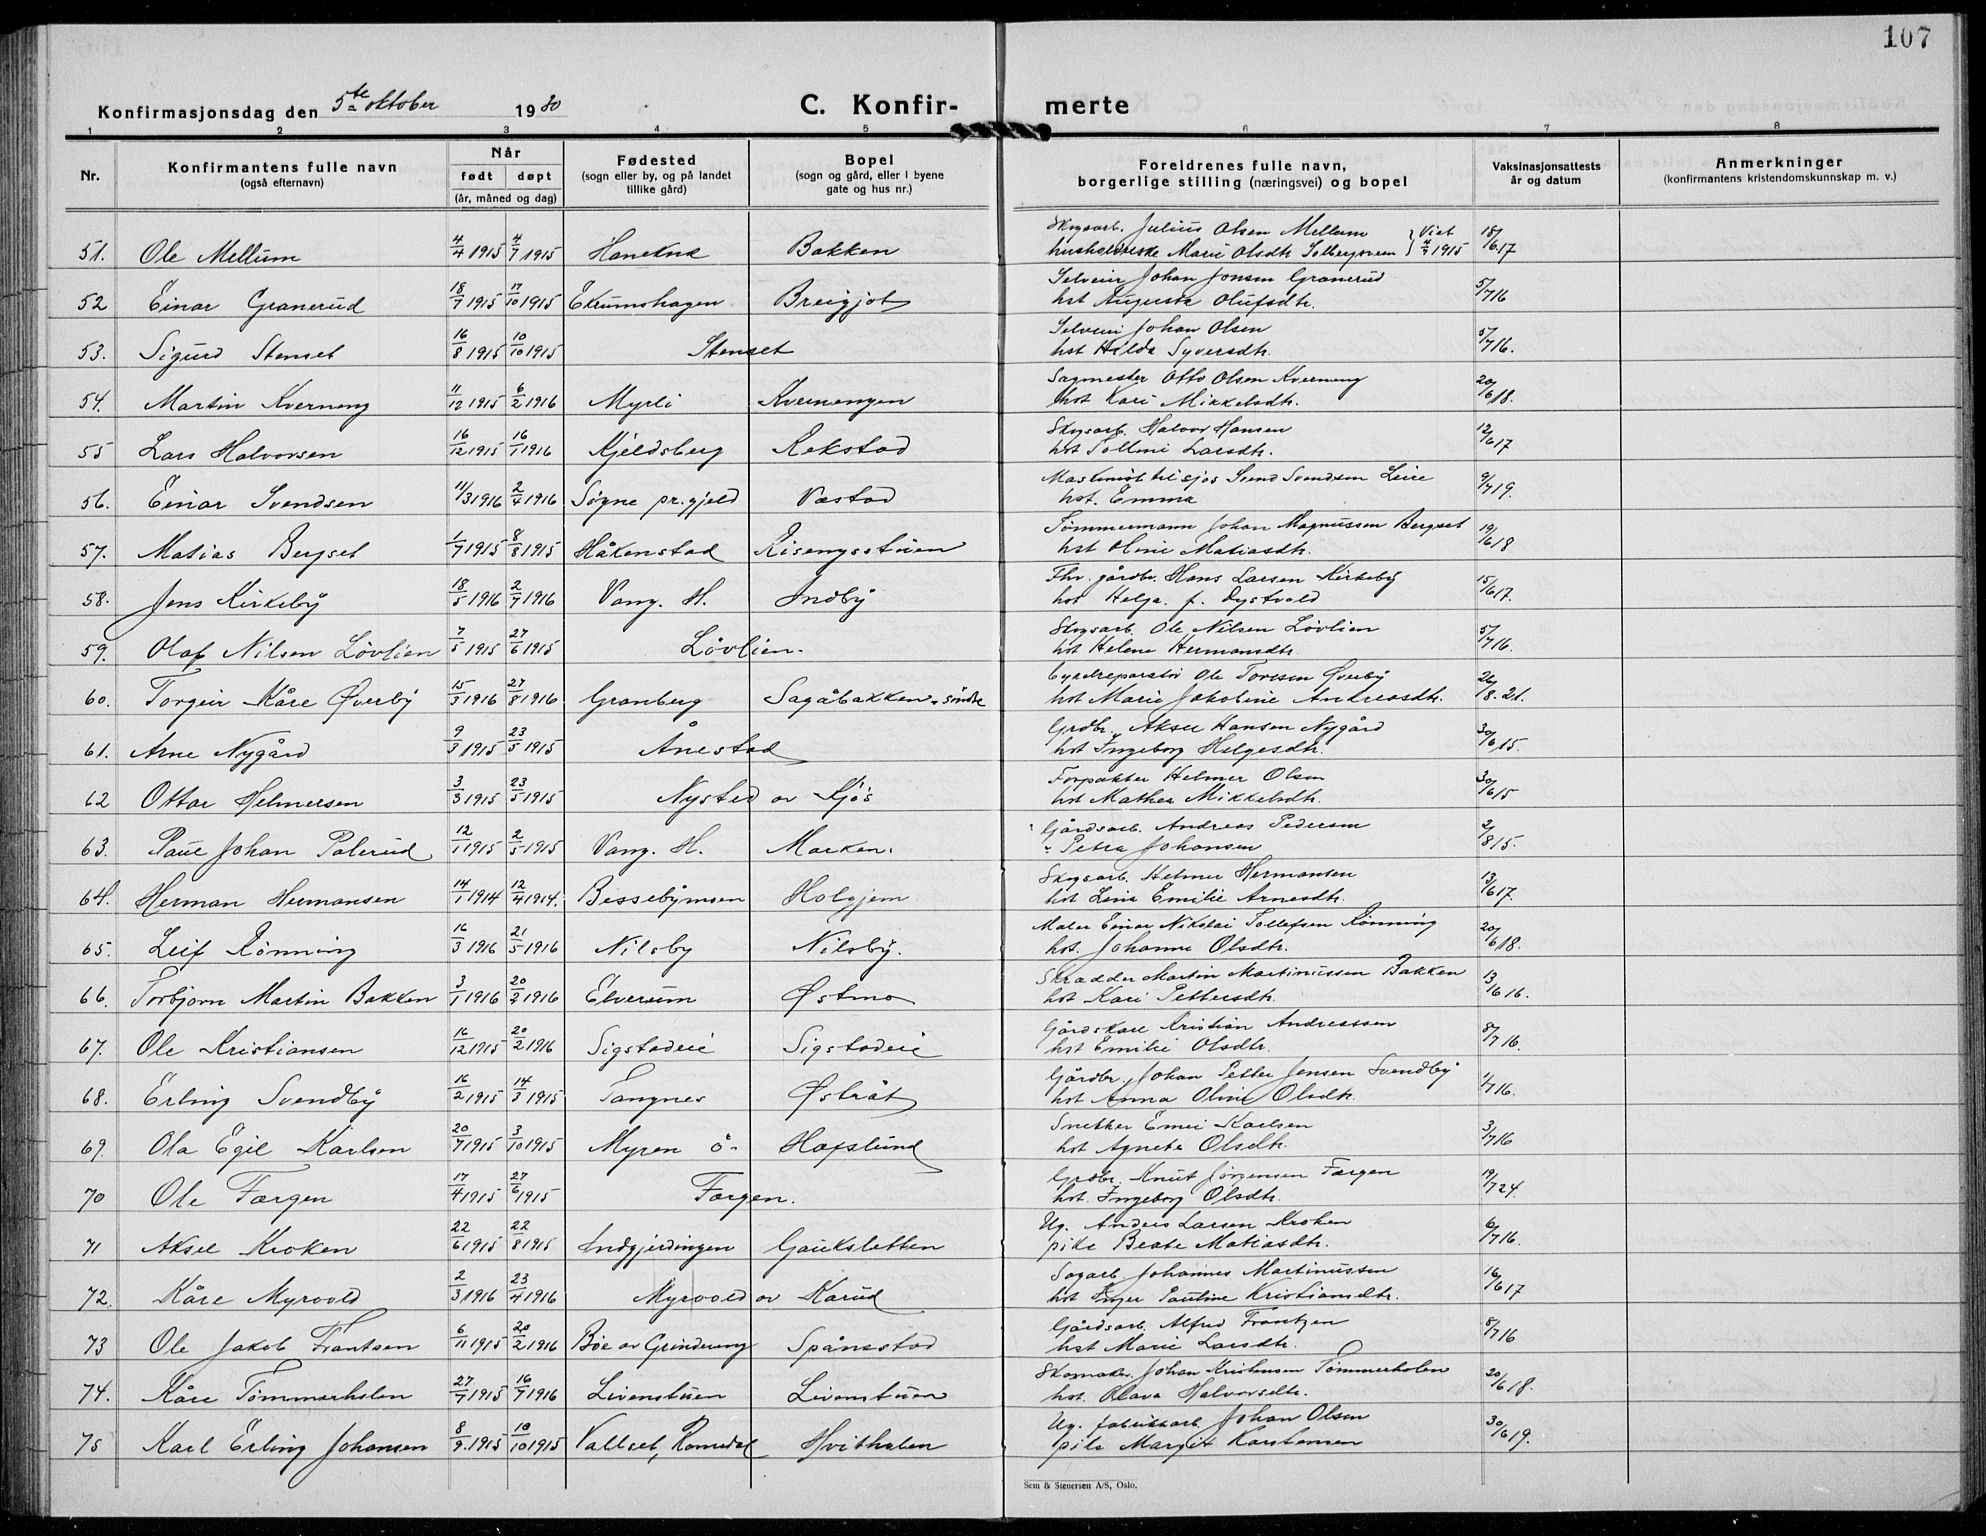 107
Konfirmasjonsdag den 5te oktober 1930
C. Konfirmerte
1 2 3 4 5 6 7 8
Nr. Konfirmantens fulle navn (også efternavn) Når født døpt (år, måned og dag) Fødested (sogn eller by, og på landet tillike gård) Bopel (sogn og gård, eller i byene gate og hus nr.) Foreldrenes fulle navn, borgerlige stilling (næringsvei) og bopel Vaksinasjonsattests år og datum Anmerkninger (konfirmantens kristendomskunnskap m. v.)
51. Ole Mellum 4/4 1915 4/7 1915 Bakken Skogsarb. Julius Olsen Mellum Marie Olsdtr. Solbergsveen } Viet 4/7 1915 18/6 17
52 Einar Granerud 18/7 1915 17/10 1915 Ekrumshagen Breigjot Selveier Johan Jonsen Granerud hst Augusta Olufsdtr. 5/7 16
53. Sigurd Stenset 16/8 1915 10/10 1915 Stenset Selveier Johan Olsen hst Hilda Syversdtr. 5/7 16.
54. Martin Kverneng 11/12 1915 6/2 1916 Myrli Kvernengen Sagmester Otto Olsen Kverneng hst Kari Mikkelsdtr. 20/6 18.
55 Lars Halvorsen 16/12 1915 16/1 1916 Kjeldsberg Rekstad Skogsarb. Halvor Hansen hst Larsdtr. 12/6 17
56. Einar Svendsen 11/3 1916 2/4 1916 Søgne pr.gjeld Væstad Maskinist til sjøs Svend Svendsen Leire hst. Emma 9/7 19.
57. Matias Bergset 1/7 1915 8/8 1915 Håkenstad Risengsstuen Tømmermann Johan Magnussen Bergset hst Oline Matiasdtr. 19/6 18
58. Jens Kirkeby 18/5 1916 2/7 1916 Vang. H. Indby Fhv. gårdbr. Hans Larsen Kirkeby hst Helga f. Dystvold 15/6 17.
59. Olaf Nilsen Løvlien 7/5 1915 27/6 1915 Løvlien. Skogsarb. Ole Nilsen Løvlien hst Helene Hermansdtr. 5/7 16.
60. Torgeir Kåre Øverby 15/3 1916 27/8 1916 Granberg Sagåbakken søndre Cykelreparatør Ole Toresen Øverby hst Marie Jakobine Andreasdtr. 26/8. 21.
61. Arne Nygård 9/3 1915 23/5 1915 Ånestad Grdbr. Aksel Hansen Nygård hst Ingeborg Helgesdtr. 30/6 15.
62 Ottar Helmersen 3/3 1915 23/5 1915 Nysted av Kjøs Forpakter Helmer Olsen hst Mathea Mikkelsdtr. 30/6 15
63. Paul Johan Palerud 12/1 1915 2/5 1915 Vang. H. Marken. Gårdsarb. Andreas Pedersen Petra Johansen 2/8 15.
64. Herman Hermansen 14/1 1914 12/4 1914. Holgjem Skogsarb. Helmer Hermansen hst Lina Emilie Arnesdtr. 13/6 17.
65. Leif Rønning 16/3 1916 21/5 1916 Nilsby Nilsby. Maler Einar Nikolai Tollefsen Rønning hst. Johanne Olsdtr. 20/6 18.
66. Torbjørn Martin Bakken 3/1 1916 20/2 1916 Elverum Østmo Skrædder Martin Martinussen Bakken hst Kari Pettersdtr. 13/6 16.
67. Ole Kristiansen 16/12 1915 20/2 1916 Sigstadeie Sigstadeie Gårdskarl Kristian Andreassen hst Emilie Olsdtr. 8/7 16.
68. Erling Svendby 16/2 1915 14/3 1915 Tangnes Østråt Gårdbr. Johan Petter Jensen Svendby hst Anna Oline Olsdtr. 1/7 16.
69. Ola Egil Karlsen 20/7 1915 3/10 1915 Myren ö. Hafslund Snekker Emil Karlsen hst Agnete Olsdtr. 3/7 16
70 Ole Færgen 17/4 1915 27/6 1915 Færgen. Grdbr. Knut Jørgensen Færgen hst. Ingeborg Olsdtr. 19/7 24.
71 Aksel Kroken 22/6 1915 22/8 1915 Indgjerdingen Gauksletten Ug. Anders Larsen Kroken pike Beate Matiasdtr. 6/7 16.
72. Kåre Myrvold 2/3 1916 23/4 1916 Myrvold av Karud Sagarb. Johannes Martinussen hst Inger Pauline Kristiansdtr. 16/6 17
73 Ole Jakob Frantsen 6/11 1915 20/2 1916 Bøe av Grindereng Spånestad Gårdsarb. Alfred Frantzen hst Marie Larsdtr. 8/7 16
74. Kåre Tømmerholen 27/7 1915 16/7 1916 Livenstuen Livenstuen Skomaker Johan Kristensen Tømmerholen hst. Olava Halvorsdtr. 20/6 18.
75 Karl Erling Johansen 8/9. 1915 10/10 1915 Vallset, Romedal Hvitholen Ug. fabrikkarb. Johan Olsen pike Margit Karstensen 30/6 19.
Sem & Stenersen A/S, Oslo.